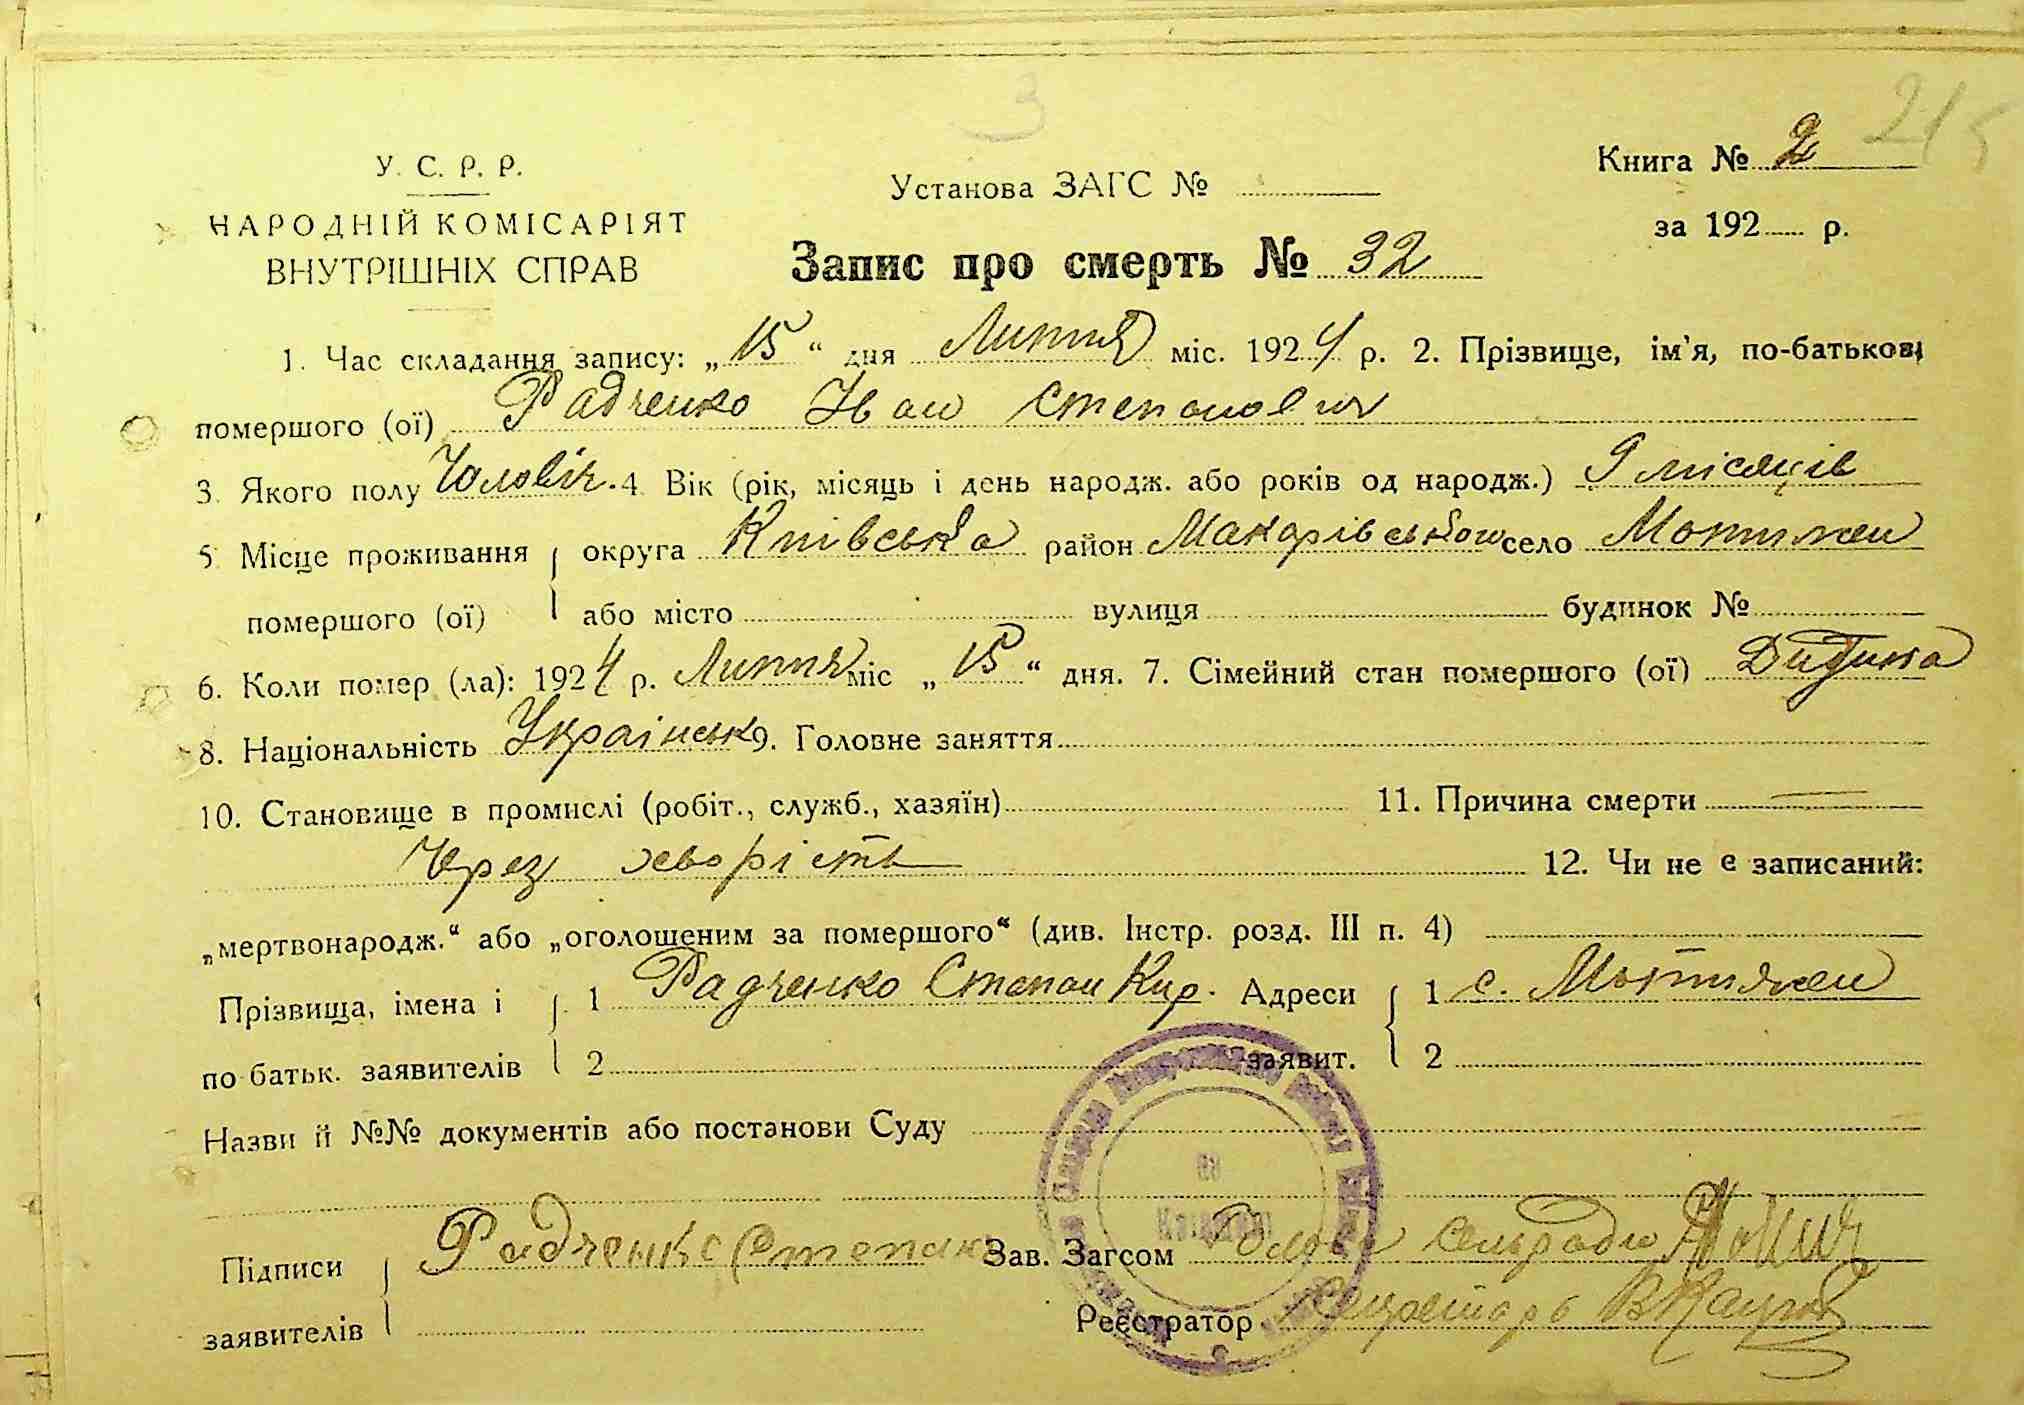 3
215
У. С. Р. Р.
НАРОДНІЙ КОМІСАРІЯТ
ВНУТРІШНІХ СПРАВ
Установа ЗАГС №
Книга № 2
за 192 р.
Запис про смерть № 32
1. Час складання запису: „15“ дня Липня міс. 1924 р. 2. Прізвище, ім'я, по-батькові
помершого (ої) Радченко Іван Степанович
3. Якого полу Чоловіч. 4. Вік (рік, місяць і день народж. або років од народж.) 9 місяців
5. Місце проживання округа Київська район Макарівського село Мотижен
помершого (ої) або місто вулиця будинок №
6. Коли помер (ла): 1924 р. Липня міс „15“ дня. 7. Сімейний стан помершого (ої) Дитина
8. Національність Українськ 9. Головне заняття
10. Становище в промислі (робіт., служб., хазяїн) 11. Причина смерти —
Через хворість 12. Чи не є записаний:
„мертвонародж.“ або „оголошеним за помершого“ (див. Інстр. розд. III п. 4)
Прізвища, імена і 1 Радченко Степан Кир. Адреси 1 с. Мотижен
по батьк. заявителів 2 заявит. 2
Назви й №№ документів або постанови Суду
Підписи Радченко Степан Зав. Загсом Голова сельради
заявителів Реєстратор Секретарь